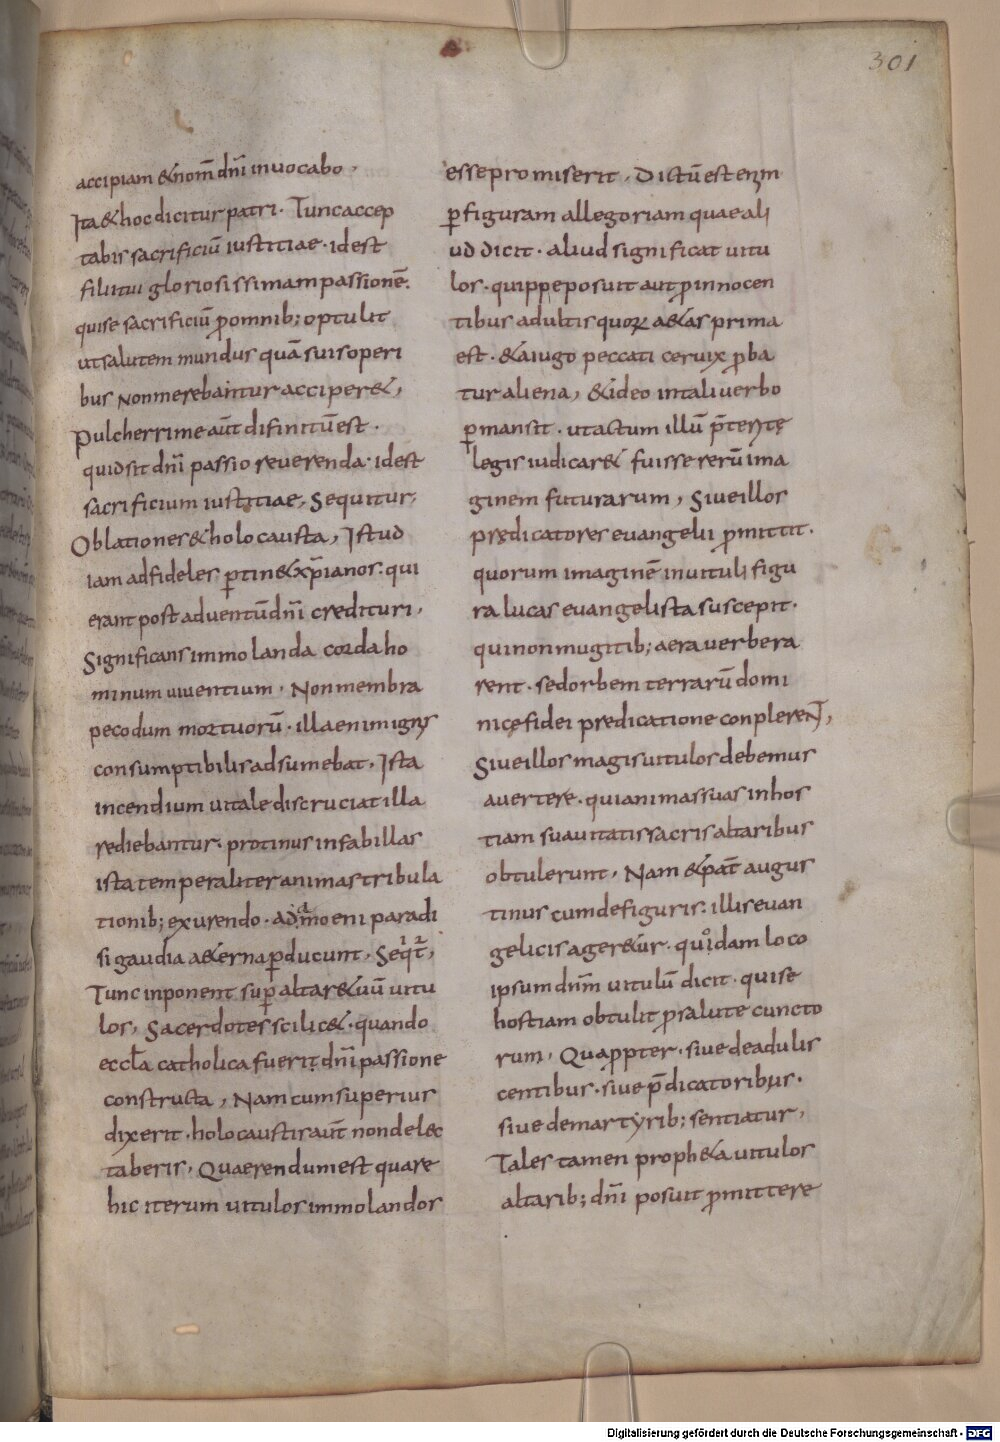 301
accipiam & nom̄ dn̄i inuocabo .
Ita & hoc dicitur patri . Tunc accep
tabis sacrificiū iustitiae . id est
filii tui gloriosissimam passionē .
qui se sacrificiū ꝓ omnib; optulit
ut salutem mundus quā suis operi
bus non merebantur acciper&,
Pulcherrime aūt difinitū est .
quid sit dn̄i passio reuerenda . id est
sacrificium iustitiae, Sequitur,
Oblationes & holocausta, Istud
iam ad fideles ꝑtin& xp̄ianos . qui
erant post aduentū dn̄i credituri,
Significans immolanda corda ho
minum uiuentium . Non membra
pecodum mortuorū . illa enim ignis
consumptibilis adsumebat . Ista
incendium uitale discruciat illa
rediebantur . protinus in fabillas
ista temperaliter animas tribula
tionib; exurendo . ad amoeni paradi
si gaudia a&erna ꝑducunt . Seqt̄,
Tunc inponent suꝑ altar& uū uitu
los, Sacerdotes scilic& . quando
eccła catholica fuerit dn̄i passione
constructa, Nam cum superius
dixerit . holocaustis aūt non delec
taberis, Quaerendum est quare
hic iterum uitulos immolandos
esse promiserit . Dictū est enim
ꝑ figuram allegoriam quae ali
ud dicit . aliud significat uitu
los . quippe posuit aut ꝓ innocen
tibus adultis quoꝝ a&as prima
est . & a iugo peccati ceruix ꝓba
tur aliena, & ideo in tali uerbo
ꝑmansit . ut actum illū p̄teritę
legis iudicar& fuisse rerū ima
ginem futurarum, Siue illos
predicatores euangelii ꝓmittit .
quorum imaginē in uituli figu
ra lucas euangelista suscepit .
qui non mugitib; aera uerbera
rent . sed orbem terrarū domi
nicę fidei predicatione conplerent,
Siue illos magis uitulos debemus
auertere . qui animas suas in hos
tiam suauitatis sacris altaribus
obtulerunt, Nam & pat̄ augus
tinus cum de figuris . illis euan
gelicis ager&ur . quodam loco
ipsum dnm̄ uitulū dicit . qui se
hostiam obtulit ꝓ salute cuncto
rum, Quaꝓpter . siue de adulis
centibus . siue p̄dicatoribus .
siue de martyrib; sentiatur,
Tales tamen proph&a uitulos
altarib; dn̄i posuit ꝓmittere
Digitalisierung gefördert durch die Deutsche Forschungsgemeinschaft - DFG